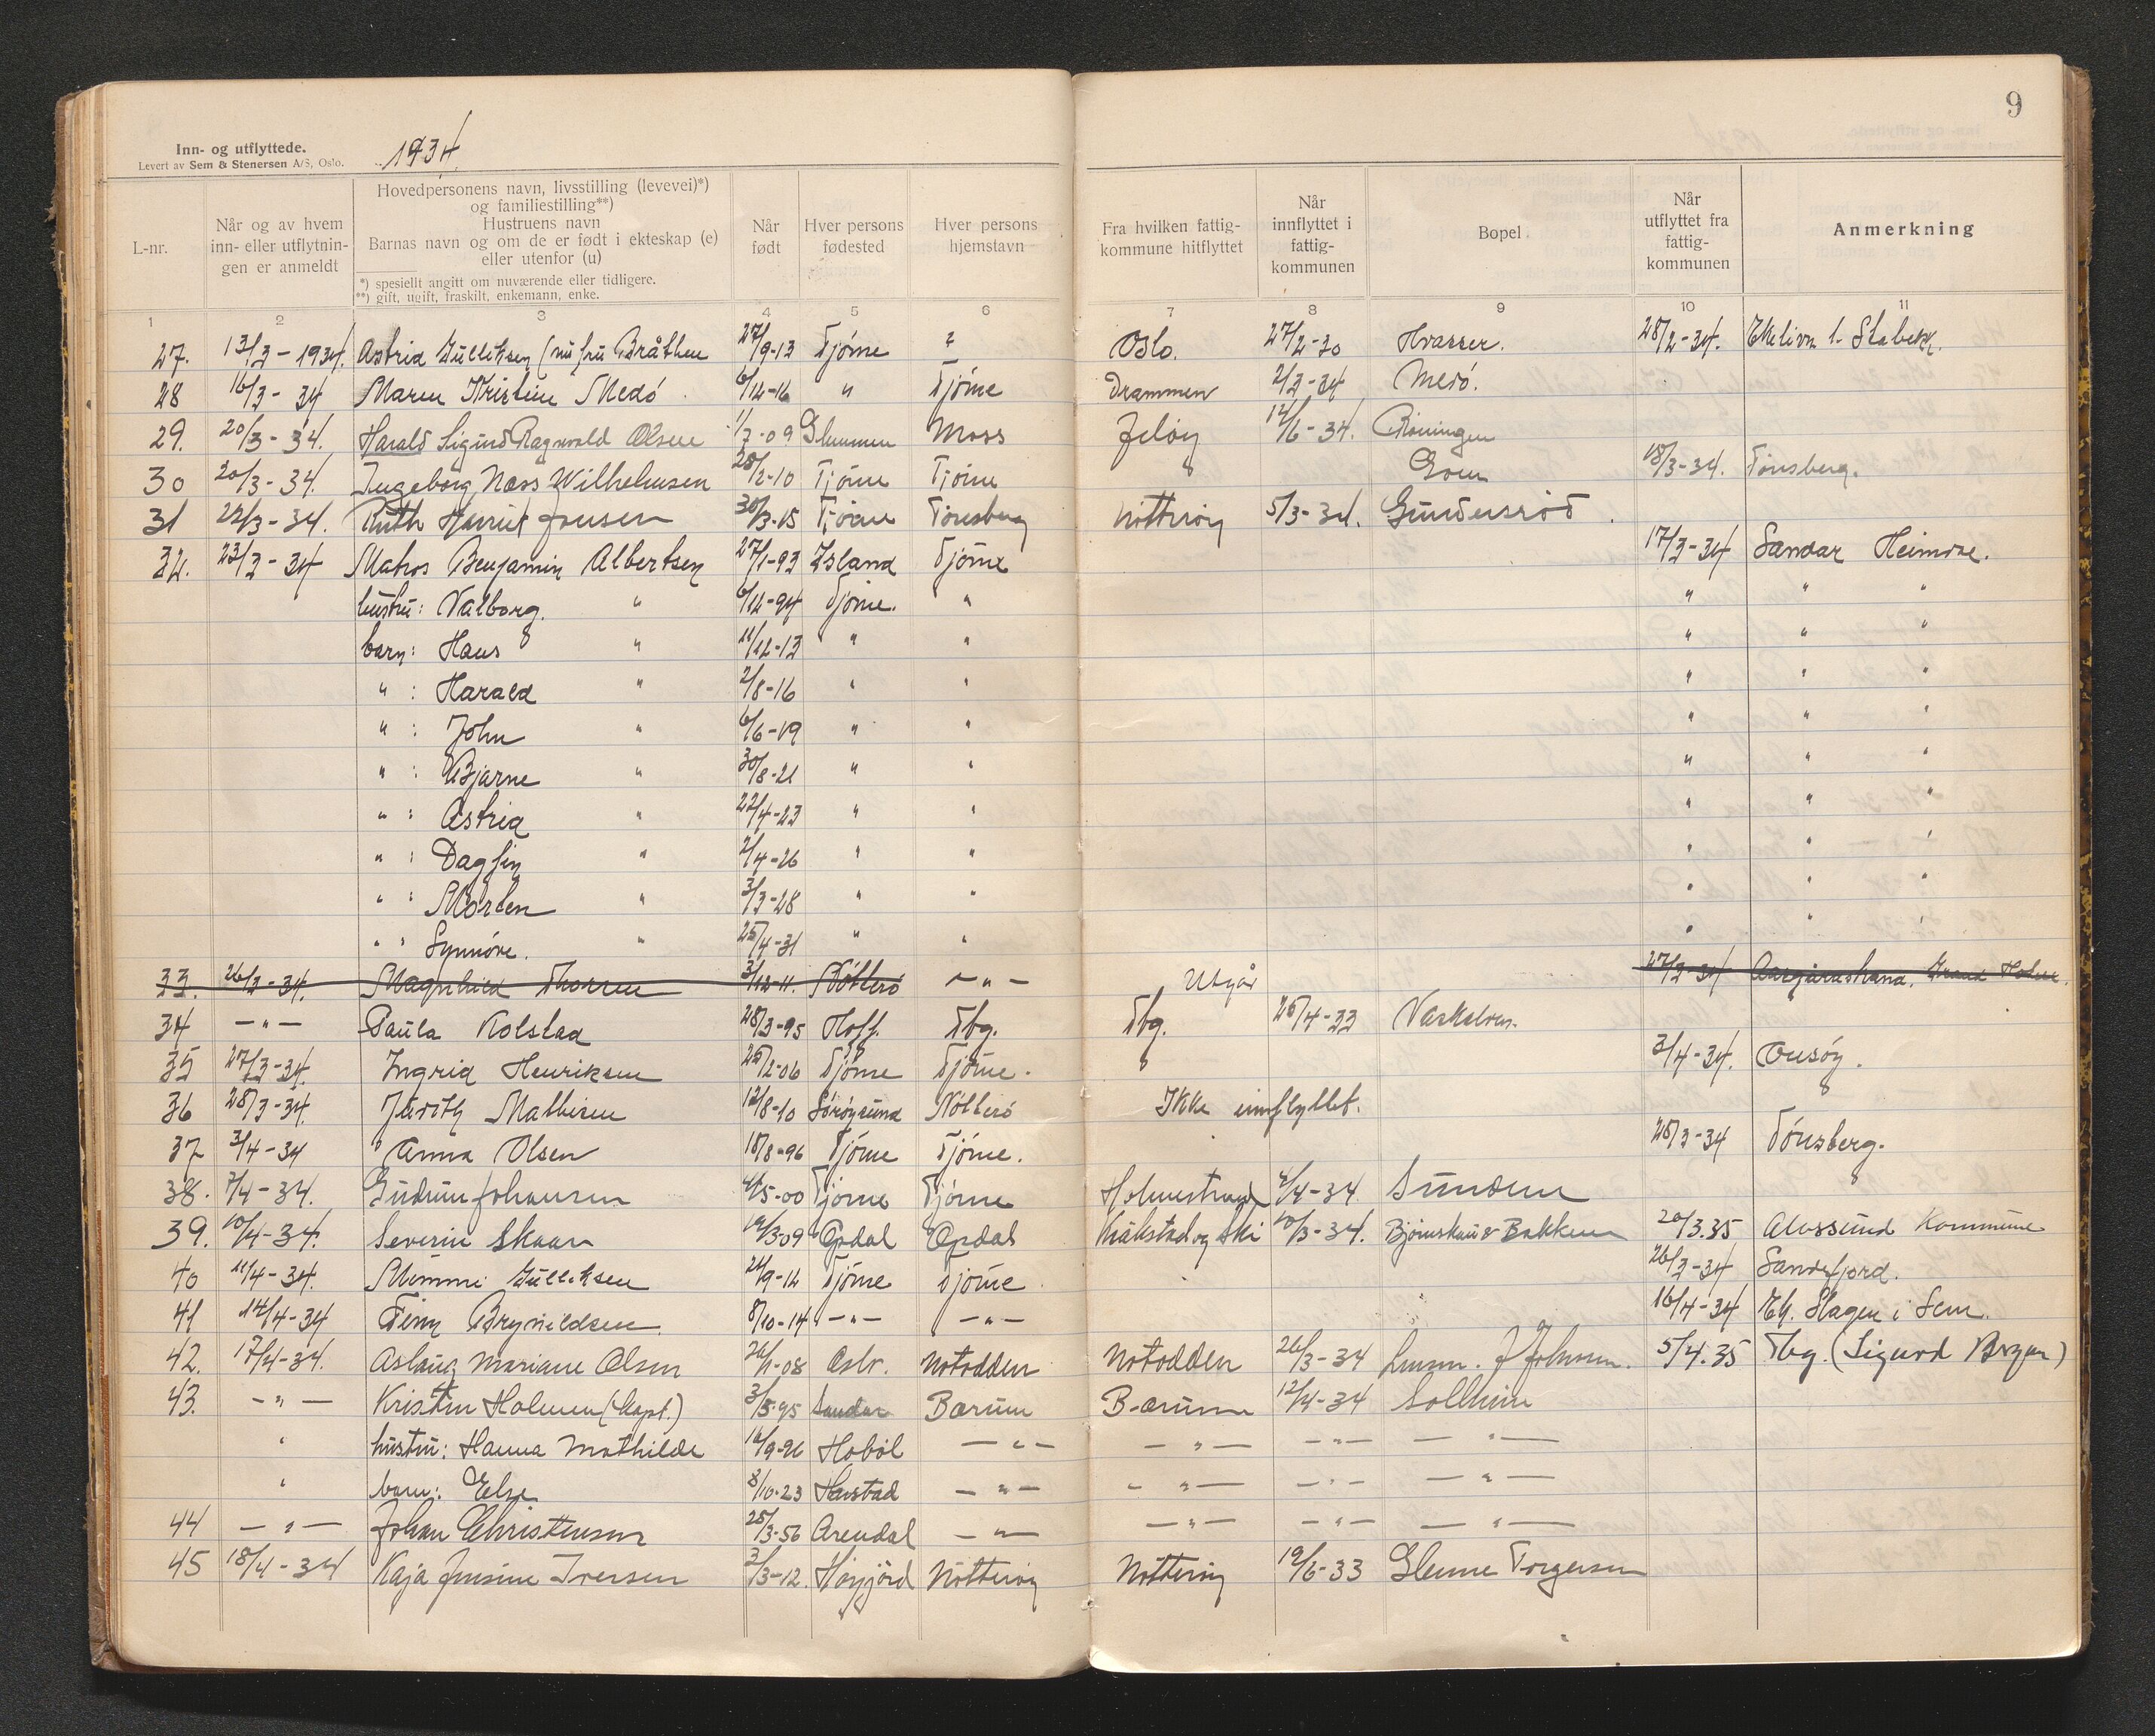 9
Inn- og utflyttede.
Levert av Sem & Stenersen A/S, Oslo.
1934
L-nr.
Når og av hvem inn- eller utflytnin-gen er anmeldt
Hovedpersonens navn, livsstilling (levevei)*)
og familiestilling**)
Hustruens navn
Barnas navn og om de er født i ekteskap (e)
eller utenfor (u)
*) spesiellt angitt om nuværende eller tidligere.
**) gift, ugift, fraskilt, enkemann, enke.
Når født
Hver persons fødested
Hver persons hjemstavn
Fra hvilken fattig-kommune hitflyttet
Når innflyttet i fattig-kommunen
Bopel
Når utflyttet fra fattig-kommunen
Anmerkning
1 2 3 4 5 6 7 8 9 10 11
27. 13/3-1934. Astrid Gulliksen (nu fru Bråthen 27/9-13 Tjøme ? Oslo. 27/2-30 Hvasser. 28/2-34. Stabekk.
28 16/3-34 Maren Kristine Medö 6/12-16 " Tjöme Drammen 2/3-34 Medö.
29. 20/3-34. Harald Sigurd Ragnvald Olsen 1/7-09 Glemmen Moss Jelöy 12/6-34. Röningen
30 20/3-34. Ingeborg Næss Wilhelmsen 28/2-10 Tjöme Tjöme 18/3-34. Tönsberg.
31 22/3-34. Ruth Harriet Jensen 30/3-15 Tjöme Tönsberg Nötteröy 5/3-34. Gundersröd
32. 23/3-34 Matros Benjamin Albertsen 27/1-93 Island Tjöme 17/3-34 Sandar Heimdal.
hustru: Valborg. " 6/12-94 Tjöme. " " " "
barn: Hans " 11/12-13 " " " " "
" : Harald " 2/8-16 " " " " "
" : John " 6/6-19 " " " " "
" : Bjarne " 30/8-21 " " " " "
" : Astrid " 22/4-23 " " " " "
" : Dagfin " 2/4-26 " " " " "
" : Morten " 3/3-28 " " " " "
" " Synnöve. " 25/4-31 " " " " "
33. 26/3-34. Magnhild Thorsen 3/12-11. Nötterö -"- Utgår 27/3-34 Aasgårdstrand. Grand Hotel.
34 -"- Paula Kolstad 28/3-95 Hoff. Tbg. Tbg. 26/4-33
35 27/3-34. Ingrid Henriksen 25/2-06 Tjöme Tjöme. 3/4-34. Onsöy.
36 28/3-34. Judith Mathisen 12/8-10 Söröysund Nötterö Ikke innflyttet.
37 3/4-34 Anna Olsen 18/8-96 Tjöme Tjöme. 28/3-34 Tönsberg.
38. 7/4-34. Gudrun Johansen 4/5-00 Tjöme Tjöme Holmestrand 4/4-34. Sunden
39. 10/4-34. Severin Skaar 19/3-09 Opdal Opdal Kråkstad og Ski 10/3-34. Bjørnskau & Bakken 20/3.35 Alvsund Kommune
40 11/4-34. Mimmi Gulliksen 24/9-12 Tjöme Tjöme 26/3-34 Sandefjord.
41 14/4-34 Finn Brynildsen. 8/10-14 -"- -"- 16/4-34 Ek. Slagen i Sem.
42. 17/4-34. Aslaug Mariane Olsen 26/1-08 Oslo. Notodden Notodden 26/3-34 Lensm. J Johnsen. 5/4.35 Tbg. (Sigurd Bryn)
43. -"- Kristen Holmen (Kapt.) 3/5-95 Sandar Bærum Bærum 12/4-34 Solheim
" hustru: Hanna Mathilde 16/9-96 Hobøl -"- -"- -"- -"-
" barn: Else 8/10-23 Harstad -"- -"- -"- -"-
44 -"- Johan Christensen 25/3-56 Arendal -"- -"- -"- -"-
45 18/4-34 Kaja Jensine Iversen 3/3-12. Høyjord Nötteröy Nötteröy 19/6-33 Glenne Torgersen